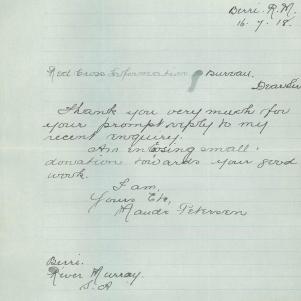 Berri. R. M.
16. 7. 18.
Red Cross Information Bureau.
Dear Sir
Thank you very much for
your prompt reply to my
recent inquiry.
Am inclosing small
donation towards your good
work.
I am,
Yours Etc,
Maude Petersen
Berri.
River Murray.
S. A